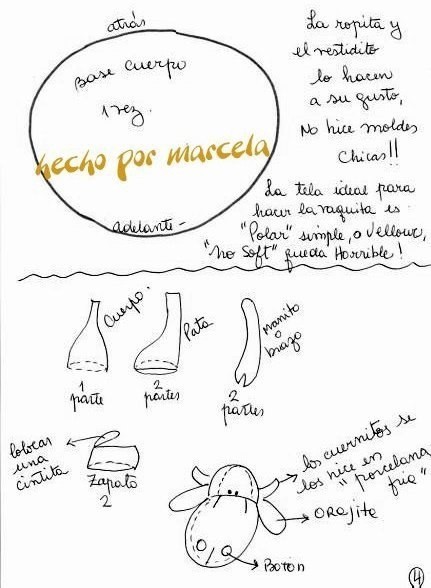 atrás
Base cuerpo
1 vez.
hecho por marcela
adelante-
La ropita y
el vestidito
lo hacen
a su gusto,
No hice moldes
Chicas!!
La tela ideal para
hacer la vaquita es
"Polar" simple, o Vellour,
"no Soft" queda Horrible!
Cuerpo.
1
parte
Pata
2
partes
Manito
o
brazo
2
partes
Colocar
una
cintita
Zapato
2
los cuernitos se
los hice en
"porcelana
fria"
orejita
Boton
4